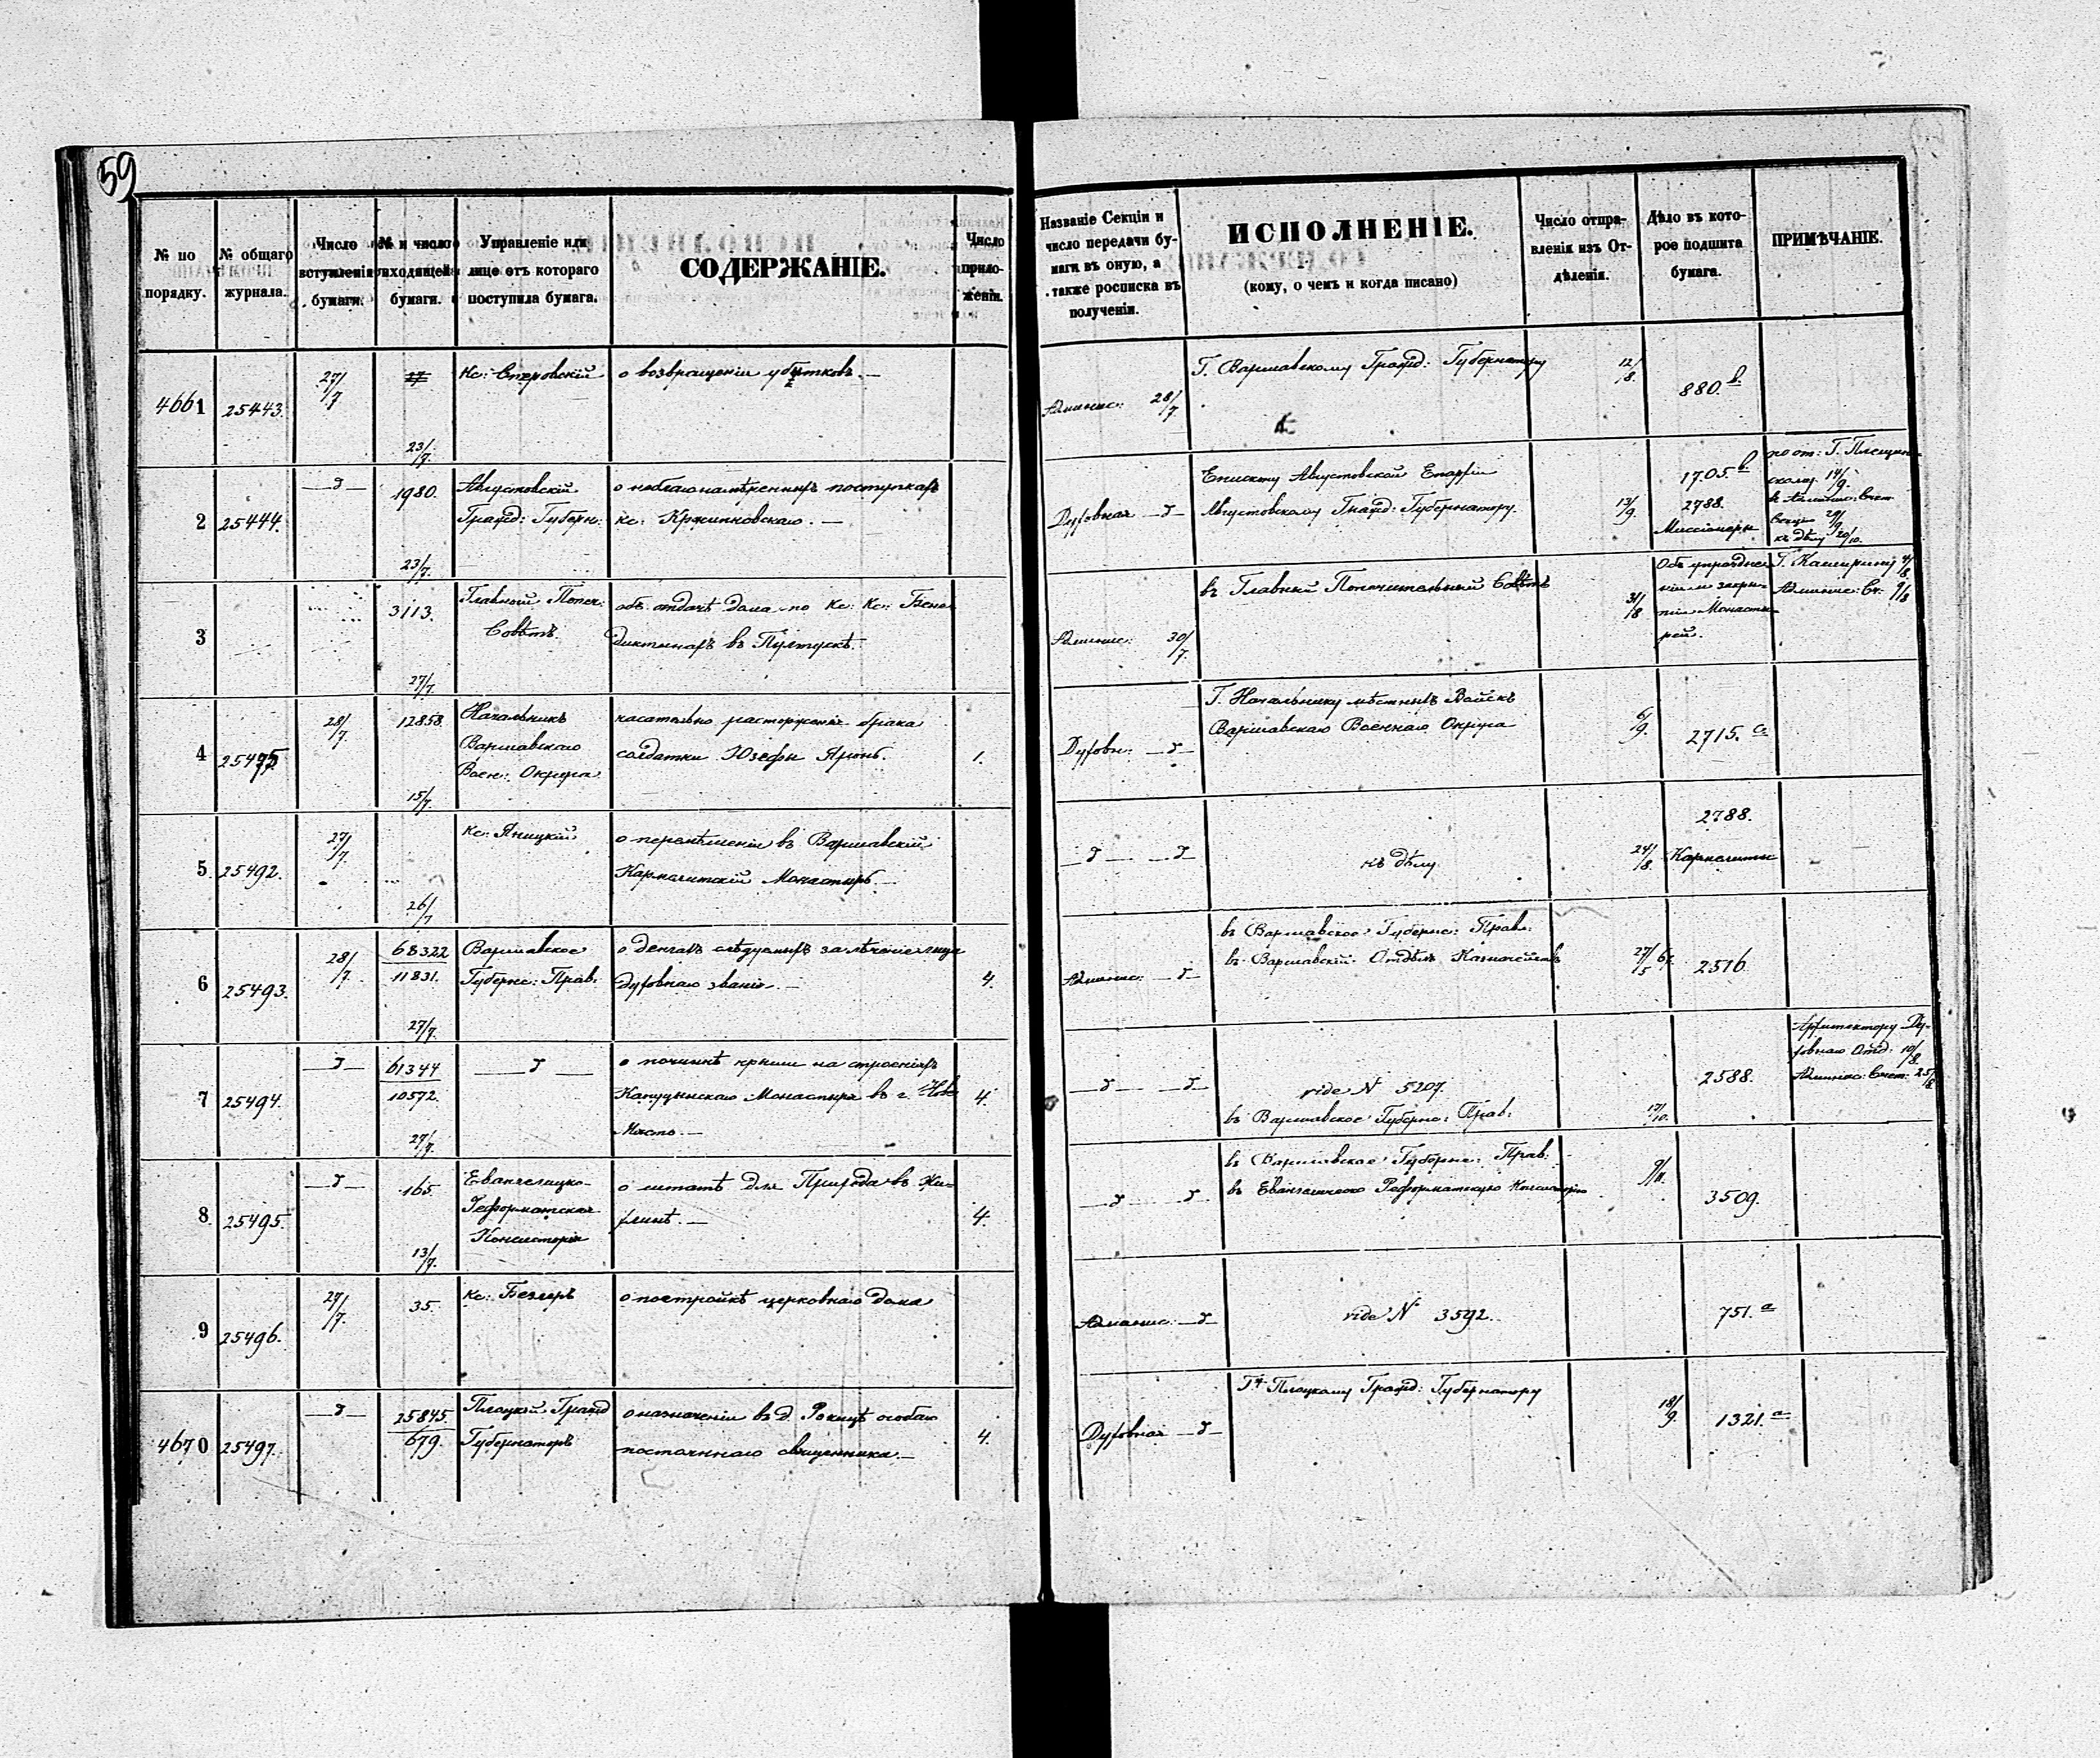 59
№ по порядку.
№ общаго журнала.
Число вступленія бумаги.
№ и число входящей бумаги.
Управленіе или лице отъ котораго поступила бумага.
СОДЕРЖАНІЕ.
Число приложеній.
Названіе Секціи и число передачи бумаги въ оную, а также росписка въ полученіи.
ИСПОЛНЕНІЕ.
(кому, о чемъ и когда писано)
Число отправленія изъ Отдѣленія.
Дѣло въ которое подшита бумага.
ПРИМѢЧАНІЕ.
4661 25443. 27/7 23/7. Кс:
о возвращеніи убытковъ. —
Админис: 28/7.
Г. Варшавскому Гражд: Губернатору 12/8. 880. b
2 25444. —д— 1980. 23/7.
Августовскій
Гражд: Губерн:
о неблагонамѣренныхъ поступкахъ
кс:
Духовная —д—
Епископу Августовской Епархіи
Августовскому Гражд: Губернатору. 13/9.
1705. b
2788.
Миссіонеры
3 3113. 27/7.
Главный Попеч:
Совѣтъ.
объ отдачѣ дома по Кс: Кс: Бене
диктинахъ въ Пултускѣ.
Админис: 30/7.
въ Главный Попечительный Совѣтъ 31/8
Объ упраздне
ніи и закры-
тіи Монасты-
рей.
Г. Каширину 4/8
Админис: Сч: 9/8
4 28/7. 12858. 15/7.
Начальникъ
Варшавскаго
Воен: Округа
касательно расторженія брака
солдатки Юзефы
1.
Духовн: —д—
Г. Начальнику мѣстныхъ Войскъ
Варшавскаго Военнаго Округа 6/9. 2715. a
5 25492. 27/7. 26/7
Кс: Яницкій
о перемѣщеніи въ Варшавскій
Кармелитскій Монастырь. —
—д— —д—
къ дѣлу 24/8.
2788.
Кармелиты
6 25493. 28/7. 68322 11831. 27/7.
Варшавское
Губернс: Прав:
о деньгахъ слѣдуемыхъ за лѣченіе лицъ
духовнаго званія. —
4.
Админис: —д—
въ Варшавское Губернс: Правл:
въ Варшавскій Отдѣлъ Казначейства 27/5 67. 2516
7 25494. —д— 61344 10572. 27/7. —д—
о починкѣ крыши на строеніяхъ
Капуцынскаго Монастыря въ г. Нове
Място. —
4.
—д— —д—
vide № 5207.
въ Варшавское Губернс: Прав: 17/10.
2588.
Архитектору Ду-
ховнаго Отд: 10/8.
Админис: Счет: 25/8
8 25495. —д— 165. 13/7.
Евангелицко-
Реформатская
Консисторія
4.
—д— —д—
въ Варшавское Губернс: Прав:
въ Евангелическо Реформатскую Консисторію 9/11. 3509.
9 25496. 27/7. 35.
о постройкѣ церковнаго дома
Админис: —д—
vide № 3592. 751. a
4670 25497. —д— 25845. 679.
Плоцкій Гражд
Губернаторъ
о назначеніи въ д. Рокицѣ особаго
постояннаго священника. —
4.
Духовная —д—
Гну Плоцкому Гражд: Губернатору 18/9. 1321. a